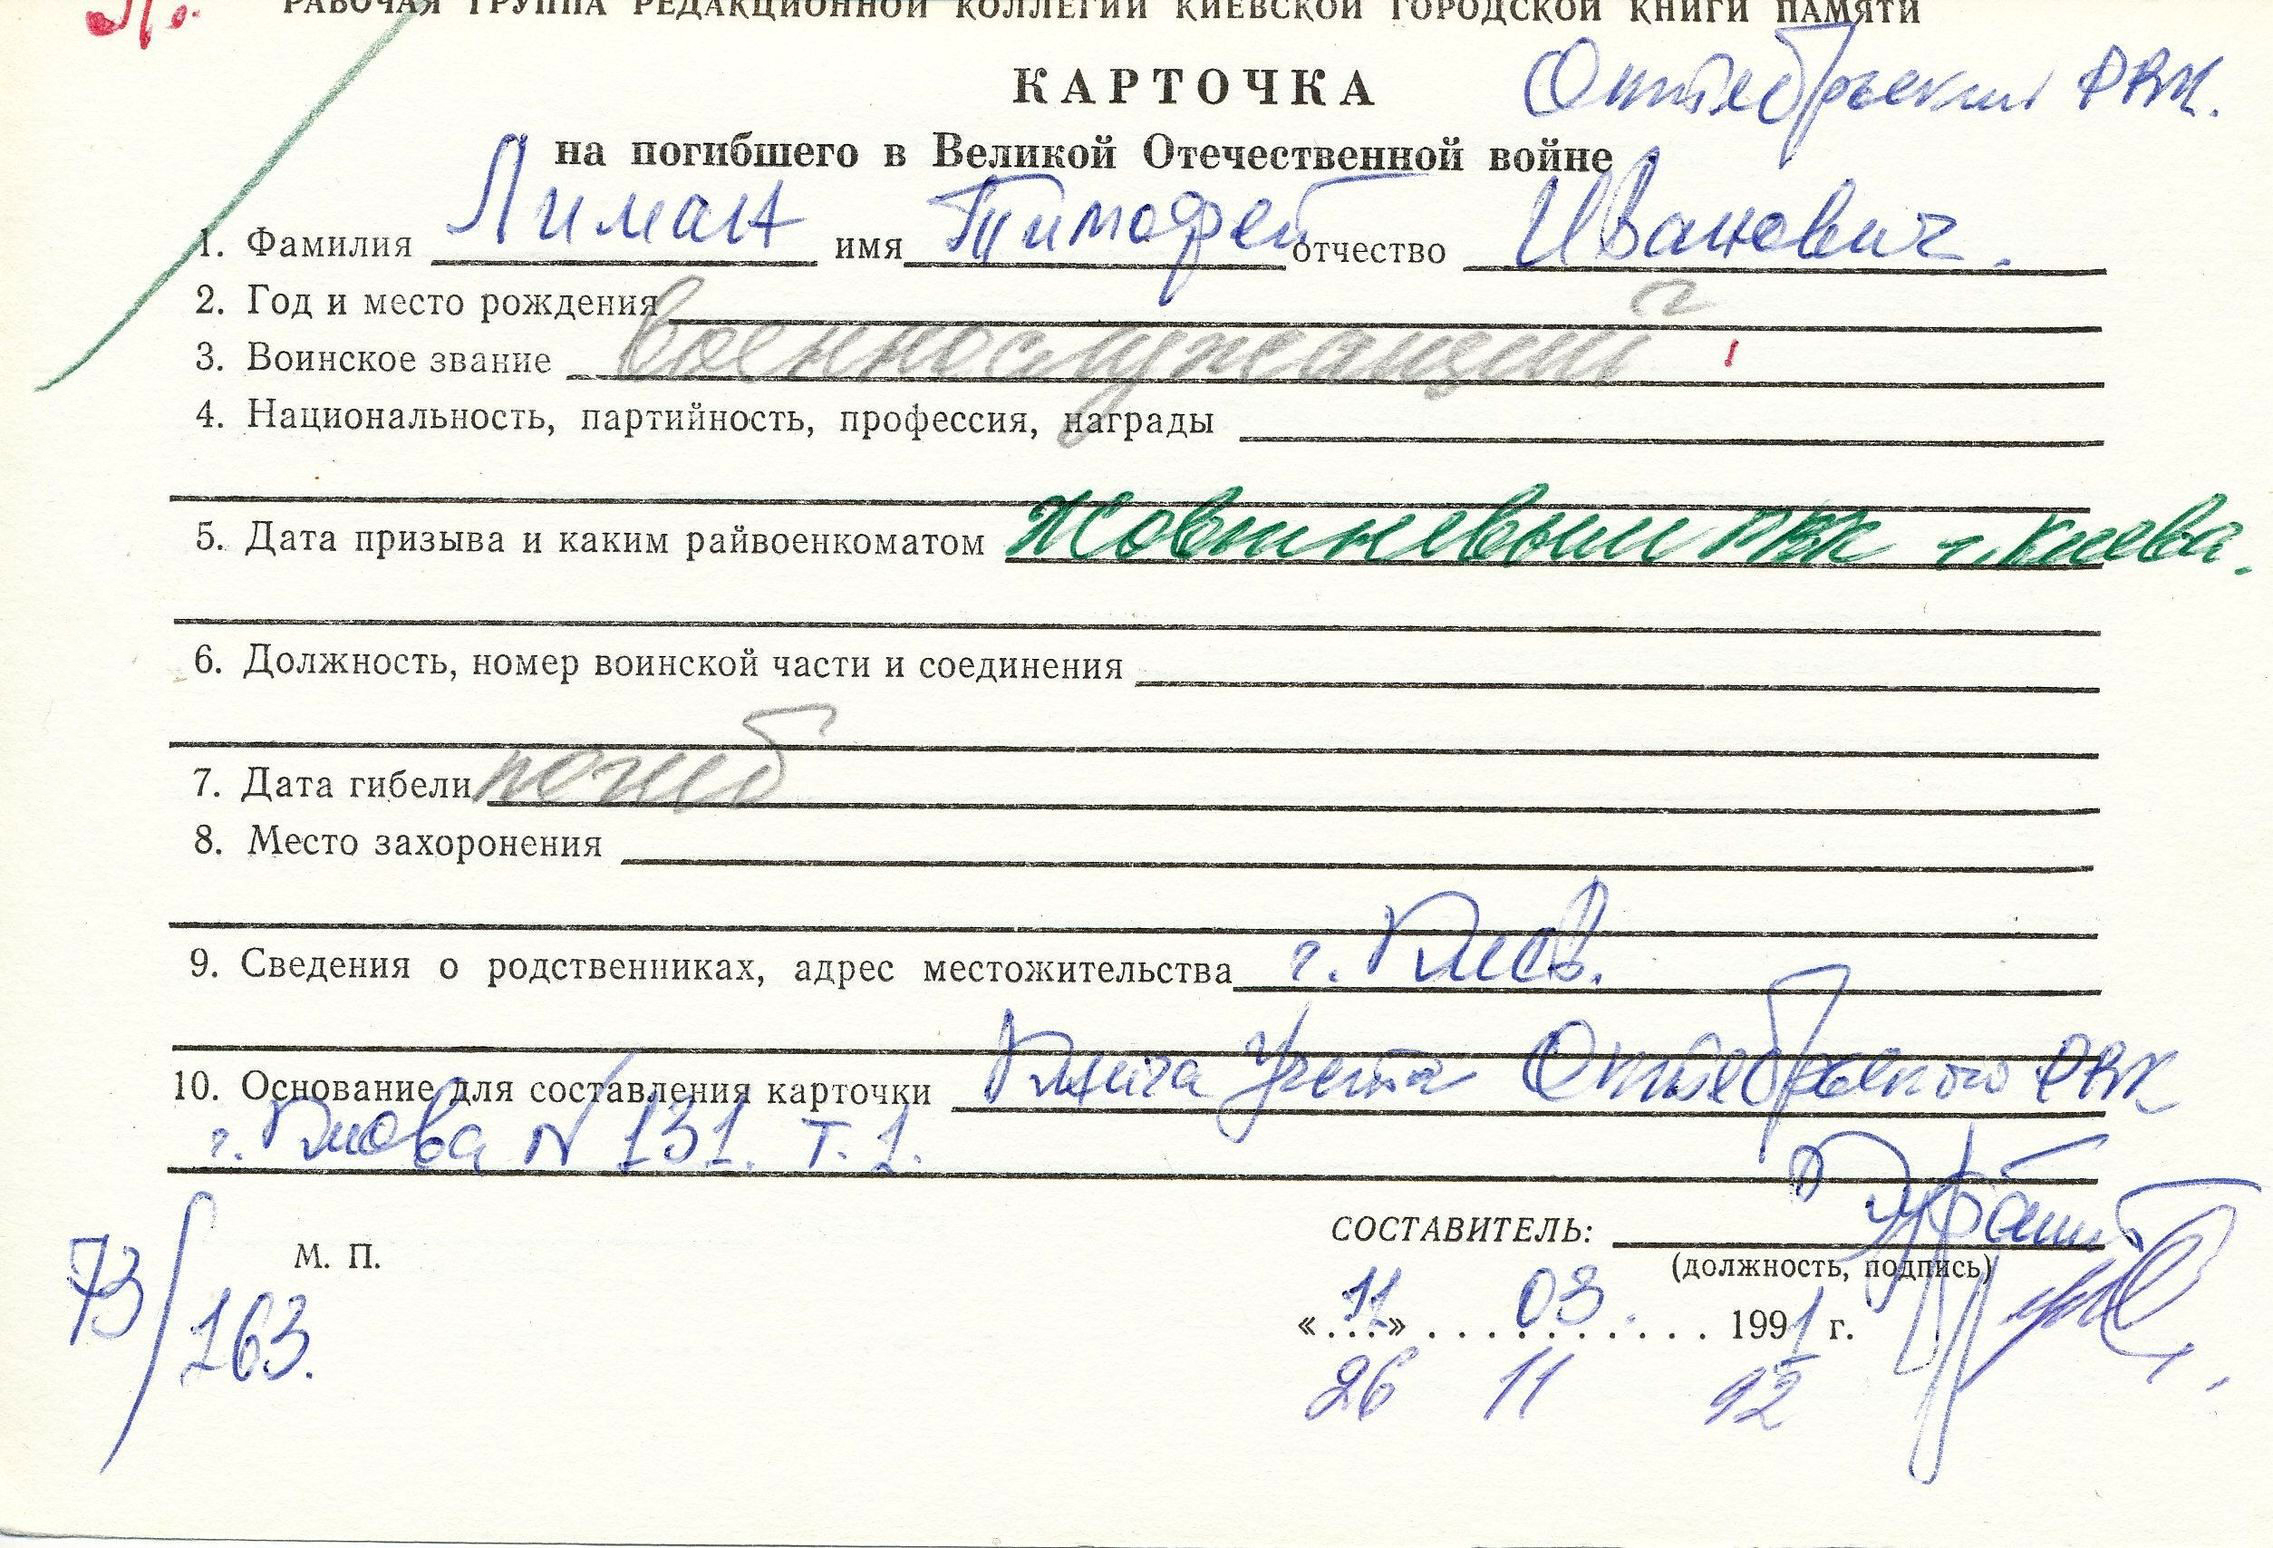 Л.
РАБОЧАЯ ГРУППА РЕДАКЦИОННОЙ КОЛЛЕГИИ КИЕВСКОЙ ГОРОДСКОЙ КНИГИ ПАМЯТИ
КАРТОЧКА
Октябрьский РВК.
на погибшего в Великой Отечественной войне
1. Фамилия Лиман имя Тимофей отчество Иванович.
2. Год и место рождения
3. Воинское звание военнослужащий
4. Национальность, партийность, профессия, награды
5. Дата призыва и каким райвоенкоматом Жовтневым РВК г. Киева.
6. Должность, номер воинской части и соединения
7. Дата гибели погиб
8. Место захоронения
9. Сведения о родственниках, адрес местожительства г. Киев.
10. Основание для составления карточки Книга учета Октябрьского РВК
г. Киева № 131. т. 1.
73/163.
М. П.
СОСТАВИТЕЛЬ:
(должность, подпись)
«11» 03. 1991 г.
26 11 92